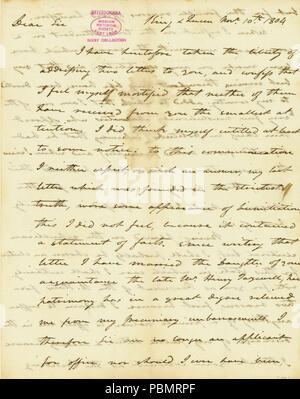 King & Queen Nov. 10th 1804
Dear Sir
JEFFERSONIANA
MISSOURI
HISTORICAL
SOCIETY
SAINT LOUIS
BIXBY COLLECTION
I have heretofore taken the liberty of
addressing two letters to you, and confess that
I feel myself mortified that neither of them
have received from you the smallest at
tention. I did think myself entitled at least
to some notice. to this communication
I neither expect nor wish an answer, my last
letter which was founded in the strictest
truth wore some appearance of humiliation
this I did not feel, because it contained
a statement of facts. Since writing that
letter I have married the daughter of your
acquaintance the late Mr. Henry Tazewell, her
patrimony has in a great degree relieved
me from my pecuniary embarrassments. I
therefore Sir am no longer an applicant
for office, nor should I ever have been
alamy
Image ID: PBMRPF
www.alamy.com